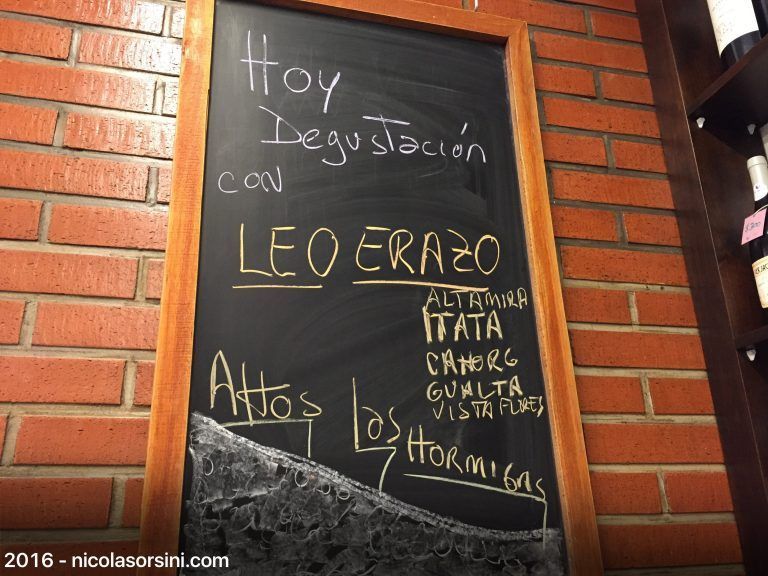 Hoy
Degustación
con
LEO ERAZO
ALTAMIRA
ITATA
CAHORS
GUALTA
VISTA FLORES
Altos
Las
HORMIGAS
2016 - nicolasorsini.com